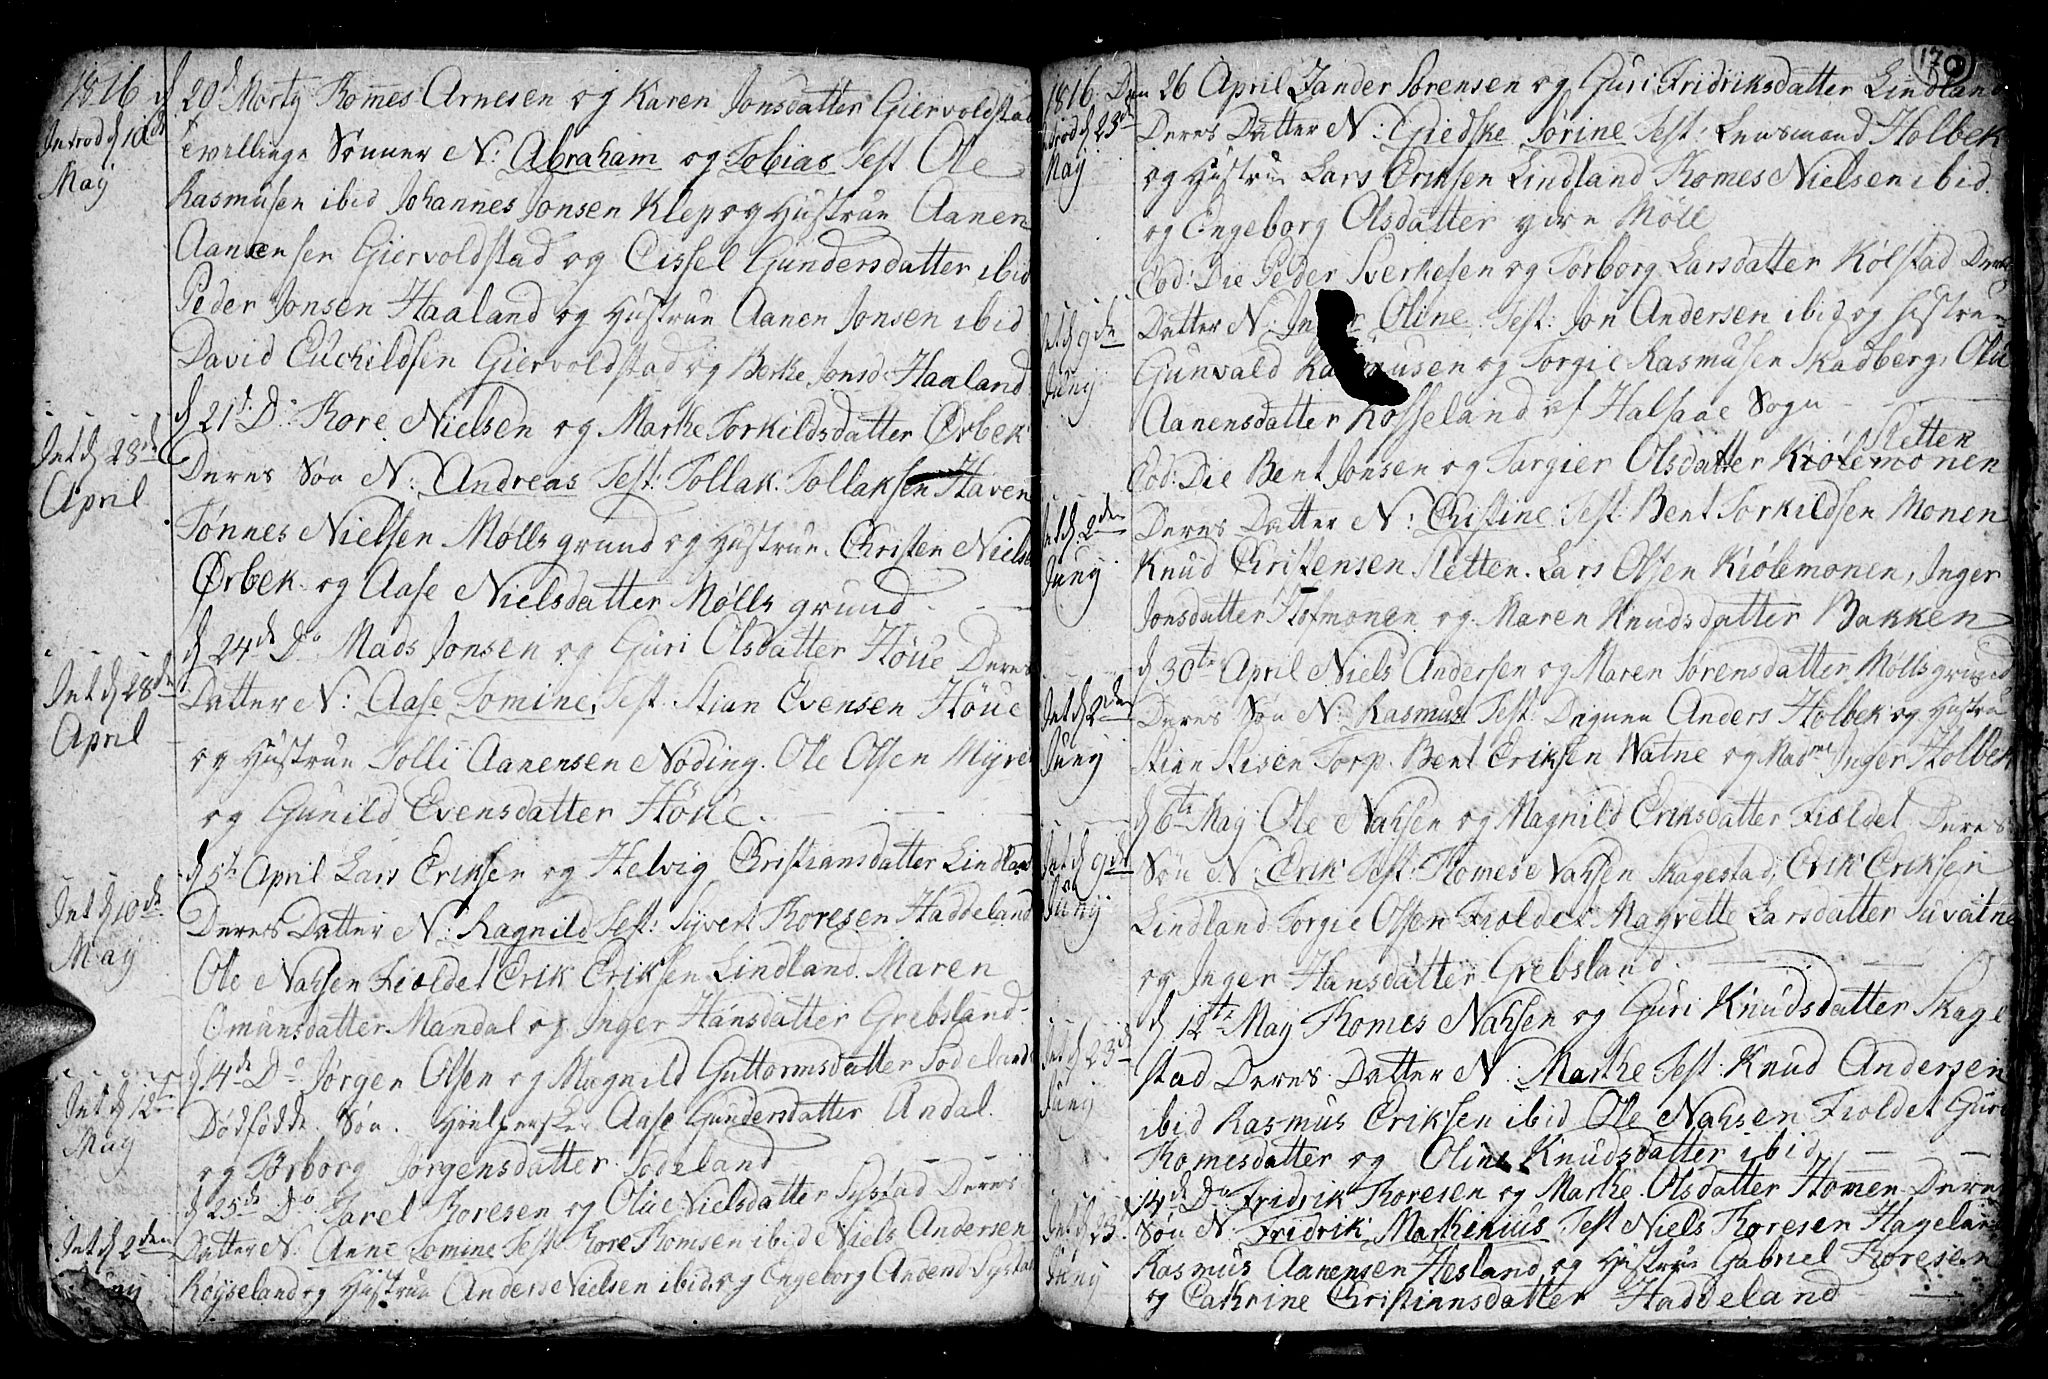 1816
Introd d 10de
May
d 20d Morty Thomes Arnesen og Karen Jonsdatter Giervoldstad
Tvillinge Sønner N: Abraham og Tobias Test Ole
Rasmusen ibid Johannes Jonsen Klep og Hustrue Aanen
Aanensen Giervoldstad og Cissel Gundersdatter ibid
Peder Jonsen Haaland og Hustrue Aanen Jonsen ibid
David Euchildsen Giervoldstad og Berthe Jonsd: Haaland
Int d 28de
April
d 21de Do Thore Nielsen og Marthe Torkildsdatter Ørbek
Deres Søn N: Andreas Test: Tollak Tollaksen Haven
Tønnes Nielsen Mølls grund og Hustrue. Christen Nielsen
Ørbek og Aase Nielsdatter Mølls grund
Int d 28de
April
d 24de Do Mads Jonsen og Guri Olsdatter Høue Deres
Datter N: Aase Tomine, Test. Stian Evensen Høue
og Hustrue Tolli Aanensen Nøding. Ole Olsen Myren
og Gunild Evensdatter Høue.
Int d 10de
May
d 5te April Lars Eriksen og Helvig Christiansdatter Lindland
Deres Datter N: Ragnild Test: Syvert Thoresen Haddeland
Ole Nahsen Fioldet Erik Eriksen Lindland. Maren
Omunsdatter Mandal og Inger Hansdatter Grebsland
Int d 12te
May
d 14de Do Jørgen Olsen og Magnild Guttormsdatter Sodeland
Dødfødde Søn. Hielpersker Aase Gundersdatter Andal.
og Torborg Jørgensdatter Sodeland
Int d 2den
Juny
d 25de Do Tarel Thoresen og Olue Nielsdatter Systad Deres
Datter N: Anne Tomine Test Thore Thomsen ibid Niels Andersen
Røyseland og Hustrue Anders Nielsen ibid og Engeborg Anders D Systad
170
1816 Den 26 April Zander Sørensen og Guri Fridriksdatter Lindland
Introd d 23de
May
Deres Datter N: Giedske Sørine Test: Lensmand Holbek
og Hustrue Lars Eriksen Lindland Thomes Nielsen ibid
og Engeborg Olsdatter øvre Møll
Int d 9de
Juny
Eod: Die Peder Sverkesen og Torborg Larsdatter Kølstad Deres
Datter N: Oline Test: Jon Andersen ibid og Hustrue
Gunvald Rasmusen og Torgie Rasmusen Skadberg, Olue
Aanensdatter Kosseland af Halsaae Sogn
Int d 2den
Juny
Sletten
Eod: Die Bent Jonsen og Targier Olsdatter Kiølemonen
Deres Datter N: Cristine: Test: Bent Torkildsen Monen
Knud Cristensen Sletten. Lars Olsen Kiølemonen, Inger
Jonsdatter Hofmonen og Maren Knudsdatter Bakken
Int d 2den
Juny
d 30te April Niels Andersen og Maren Sørensdatter Mølls grund
Deres Søn N: Rasmus Test: Degnen Anders Holbek og Hustrue
Stian Stisen Torp. Bent Eriksen Watne og Madme Inger Holbek
Int d 9de
Juny
d 6te May Ole Nahsen og Magnild Eriksdatter Fioldet Deres
Søn N: Erik Test: Thomes Nahsen Skagestad, Erik Eriksen
Lindland Torgie Olsen Fioldet Magrette Larsdatter Tuvatne
og Inger Hansdatter Grebsland.
Int d 23de
Juny
d 12te May Thomes Nahsen og Guri Knudsdatter Skage
stad Deres Datter N: Marthe Test: Knud Andersen
ibid Rasmus Eriksen ibid Ole Nahsen Fioldet Guri
Thomesdatter og Oline Knudsdatter ibid
Int d 23de
Juny
14de Do Fridrik Thoresen og Marthe Olsdatter Homen Deres
Søn N: Fridrik Markinius Test Niels Thoresen Hageland
Rasmus Aanensen Hesland og Hustrue Gabriel Thoresen
og Cathrine Cristiansdatter Haddeland